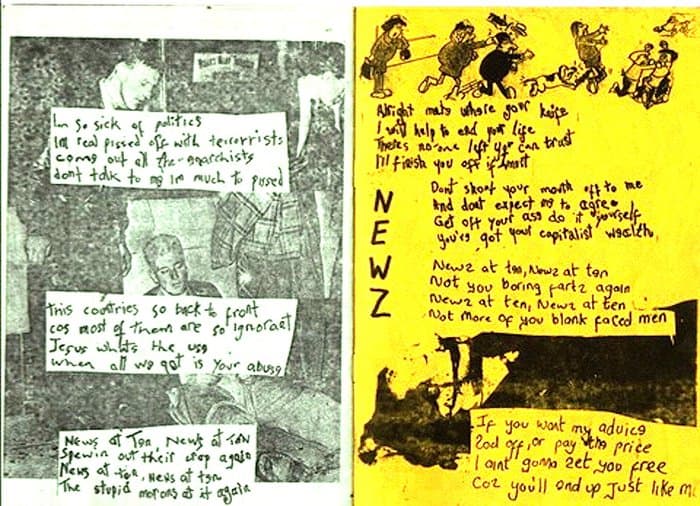 Im so sick of politics
Im real pissed off with terrorists
come out all the anarchists
dont talk to me Im much to pissed
this countries so back to front
cos most of them are so ignoraet
Jesus whats the use
when all we got is your abuse
News at Ten, News at Ten
Spewin out their crap again
News at ten, News at ten
The stupid morons at it again
Alright mate where your knife
I will help to end your life
Theres no-one left you can trust
I'll finish you off if I must
NEWZ
Dont shoot your mouth off to me
And dont expect me to agree
Get off your ass do it yourself
you've got your capitalist wealth
Newz at ten, Newz at ten
Not you boring fartz again
Newz at ten, Newz at ten
Not more of you blank faced men
If you want my advice
Zod off, or pay the price
I aint gonna zet you free
Coz you'll end up just like M